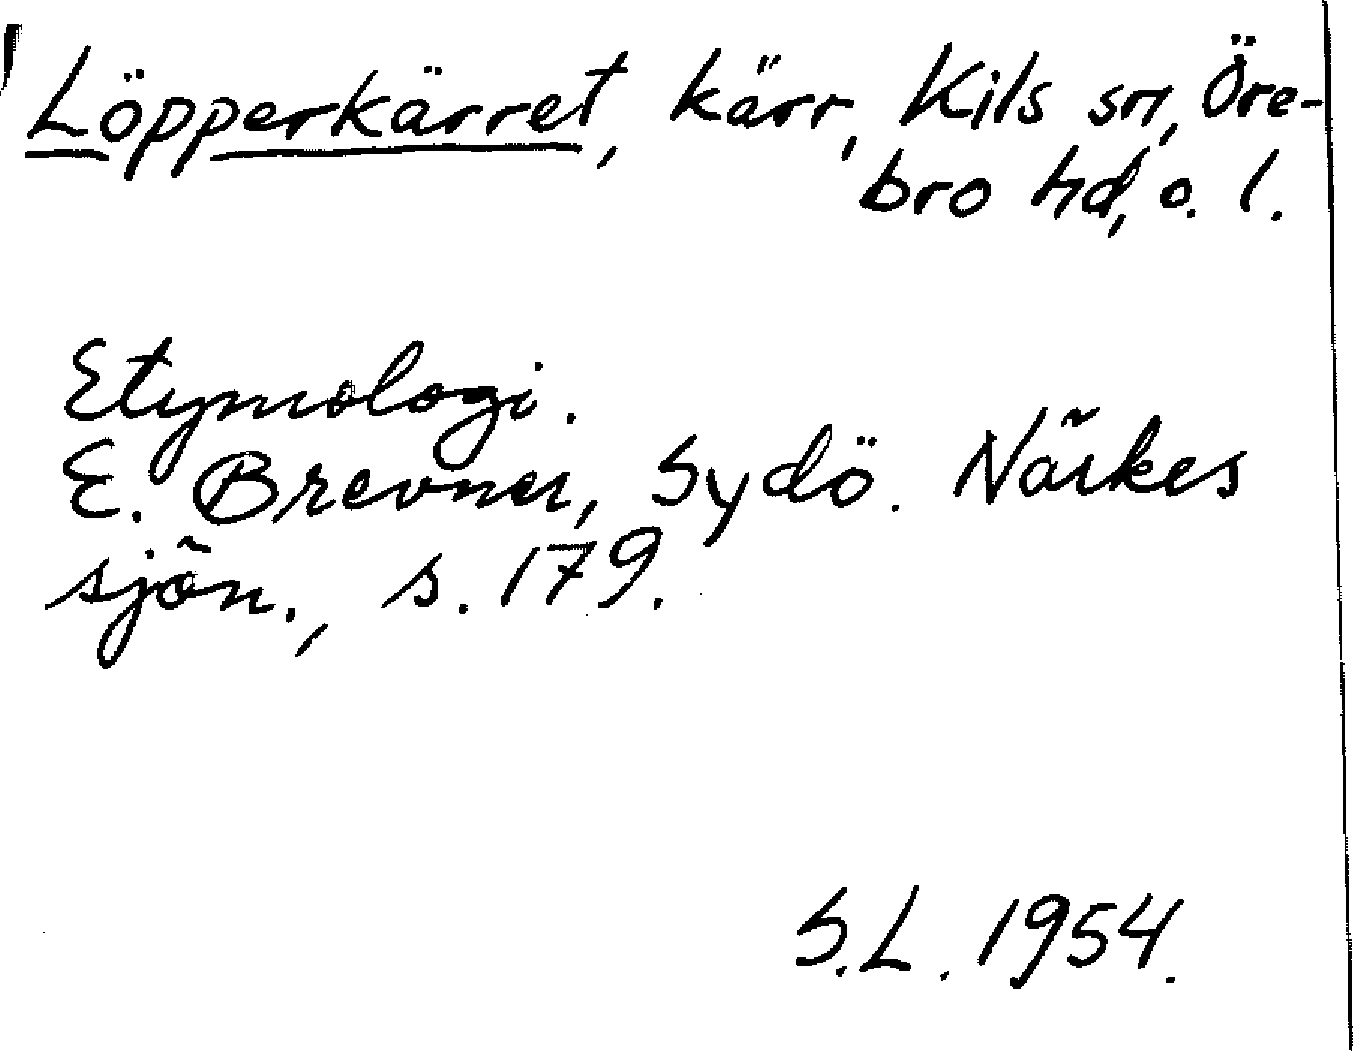 Löpperkärret, kärr, Kils sn, Öre-
bro hd, o. l.
Etymologi.
E. Brevner, Sydö. Närkes
sjön., s. 179.
S.L. 1954.